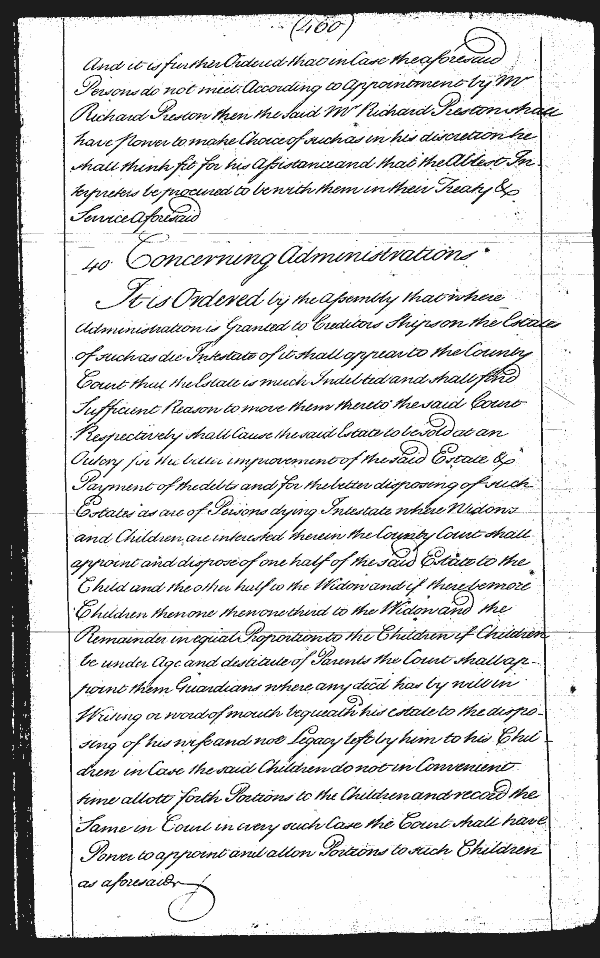 (460)
And it is further Ordered that in Case the aforesaid
Persons do not meet According to Appointment by Mr
Richard Preston then the said Mr Richard Preston shall
have Power to make Choice of such as in his discretion he
shall think fit for his Assistance and that the Ablest In-
terpreters be procured to be with them in their Treaty &
Service aforesaid
40 Concerning Administrations
It is Ordered by the Assembly that where
Administration is Granted to Creditors Ships on the Estates
of such as die Intestate if it shall appear to the County
Court that the Estate is much Indebted and shall find
Sufficient Reason to move them thereto the said Court
Respectively shall Cause the said Estate to be sold at an
Outcry for the better improvement of the said Estate &
Payment of the debts and for the better disposing of such
Estates as are of Persons dying Intestate where Widows
and Children are interested therein the County Court shall
appoint and dispose of one half of the said Estate to the
Child and the other half to the Widow and if there be more
Children then one then one third to the Widow and the
Remainder in equal Proportion to the Children if Children
be under Age and destitute of Parents the Court shall ap-
point them Guardians where any decd has by will in
Writing or word of mouth bequeath his estate to the dispo-
sing of his wife and not Legacy left by him to his Chil-
dren in Case the said Children do not in Convenient
time allott forth Portions to the Children and record the
Same in Court in every such Case the Court shall have
Power to appoint and allow Portions to such Children
as aforesaid